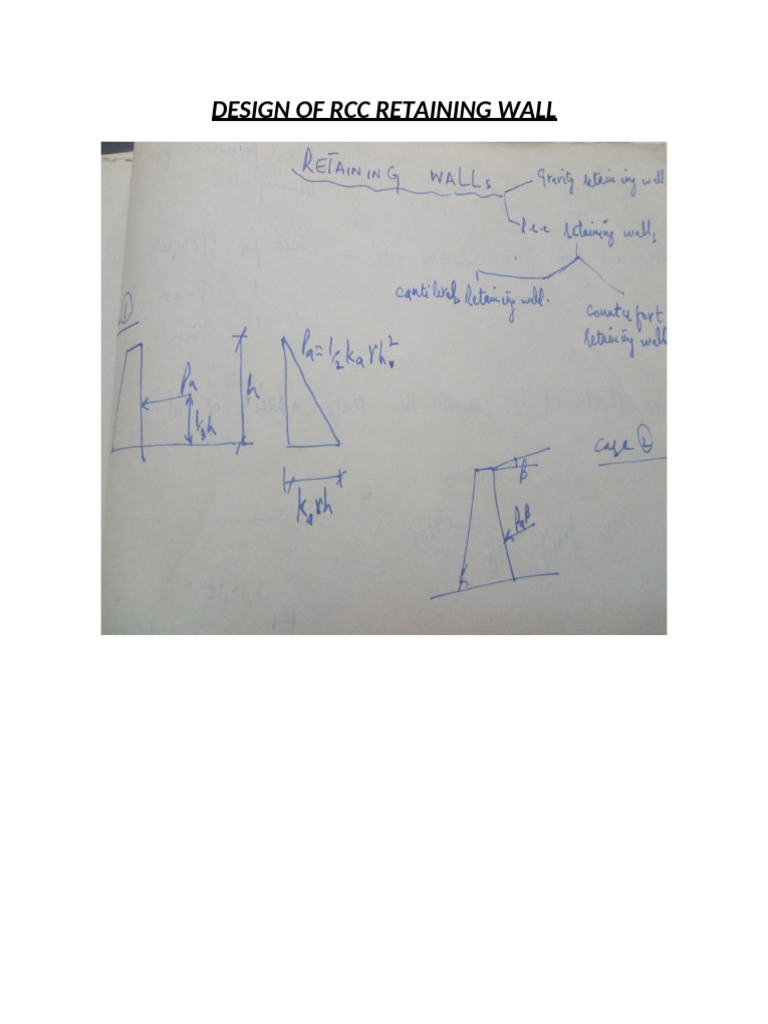 DESIGN OF RCC RETAINING WALL
RETAINING WALLs
Gravity retaining wall
R.c.c retaining walls
cantilever Retaining wall.
Counterfort
retaining wall
1)
Pa
1/3h
h
Pa = 1/2 ka γh²
kaγh
case 2
β
Paβ
h